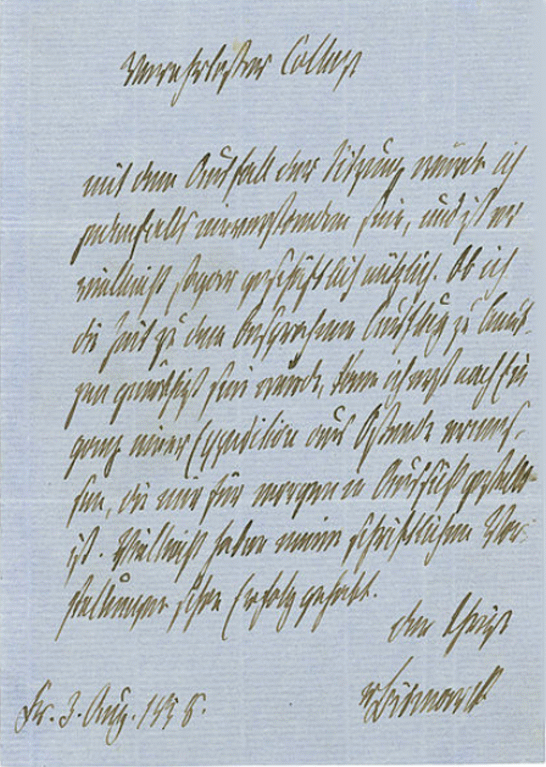 Verehrtester College
mit dem Ausfall der Sitzung würde ich
jedenfalls einverstanden sein, und ist er
vielleicht sogar geschäftlich nützlich. Ob ich
die Zeit zu dem besprochenen Ausflug zu benut-
zen genöthigt sein würde, kann ich erst nach Ein
gang einer Expedition aus Ostende ermes-
sen, die mir für morgen in Aussicht gestellt
ist. Vielleicht haben meine schriftlichen Vor
stellungen schon Erfolg gehabt.
der Ihrige
vBismarck
Fr. 3. Aug. 185